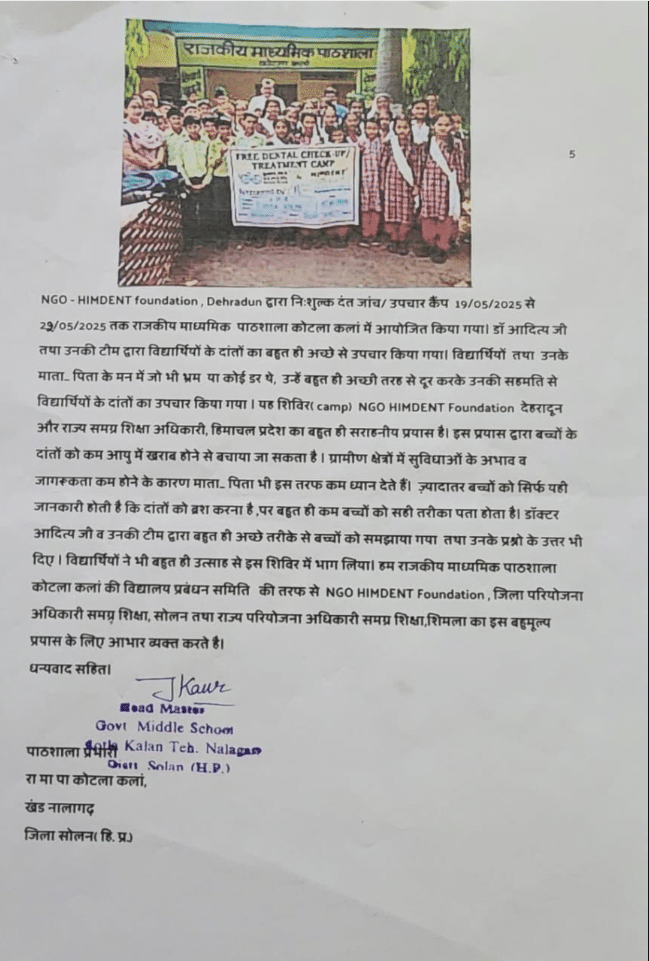 राजकीय माध्यमिक पाठशाला
कोटला कलां
FREE DENTAL CHECK-UP/
TREATMENT CAMP
HIMDENT
5
NGO - HIMDENT foundation , Dehradun द्वारा निःशुल्क दंत जांच/ उपचार कैंप 19/05/2025 से
29/05/2025 तक राजकीय माध्यमिक पाठशाला कोटला कलां में आयोजित किया गया। डॉ आदित्य जी
तथा उनकी टीम द्वारा विद्यार्थियों के दांतों का बहुत ही अच्छे से उपचार किया गया। विद्यार्थियों तथा उनके
माता- पिता के मन में जो भी भ्रम या कोई डर थे, उन्हें बहुत ही अच्छी तरह से दूर करके उनकी सहमति से
विद्यार्थियों के दांतों का उपचार किया गया । यह शिविर( camp) NGO HIMDENT Foundation देहरादून
और राज्य समग्र शिक्षा अधिकारी, हिमाचल प्रदेश का बहुत ही सराहनीय प्रयास है। इस प्रयास द्वारा बच्चों के
दांतों को कम आयु में खराब होने से बचाया जा सकता है । ग्रामीण क्षेत्रों में सुविधाओं के अभाव व
जागरूकता कम होने के कारण माता- पिता भी इस तरफ कम ध्यान देते हैं। ज़्यादातर बच्चों को सिर्फ यही
जानकारी होती है कि दांतों को ब्रश करना है ,पर बहुत ही कम बच्चों को सही तरीका पता होता है। डॉक्टर
आदित्य जी व उनकी टीम द्वारा बहुत ही अच्छे तरीके से बच्चों को समझाया गया तथा उनके प्रश्नो के उत्तर भी
दिए । विद्यार्थियों ने भी बहुत ही उत्साह से इस शिविर में भाग लिया। हम राजकीय माध्यमिक पाठशाला
कोटला कलां की विद्यालय प्रबंधन समिति की तरफ से NGO HIMDENT Foundation , जिला परियोजना
अधिकारी समग्र शिक्षा, सोलन तथा राज्य परियोजना अधिकारी समग्र शिक्षा,शिमला का इस बहुमूल्य
प्रयास के लिए आभार व्यक्त करते है।
धन्यवाद सहित।
J Kaur
Head Master
Govt Middle School
Kotla Kalan Teh. Nalagarh
Distt Solan (H.P.)
पाठशाला प्रभारी
रा मा पा कोटला कलां,
खंड नालागढ़
जिला सोलन( हि. प्र.)